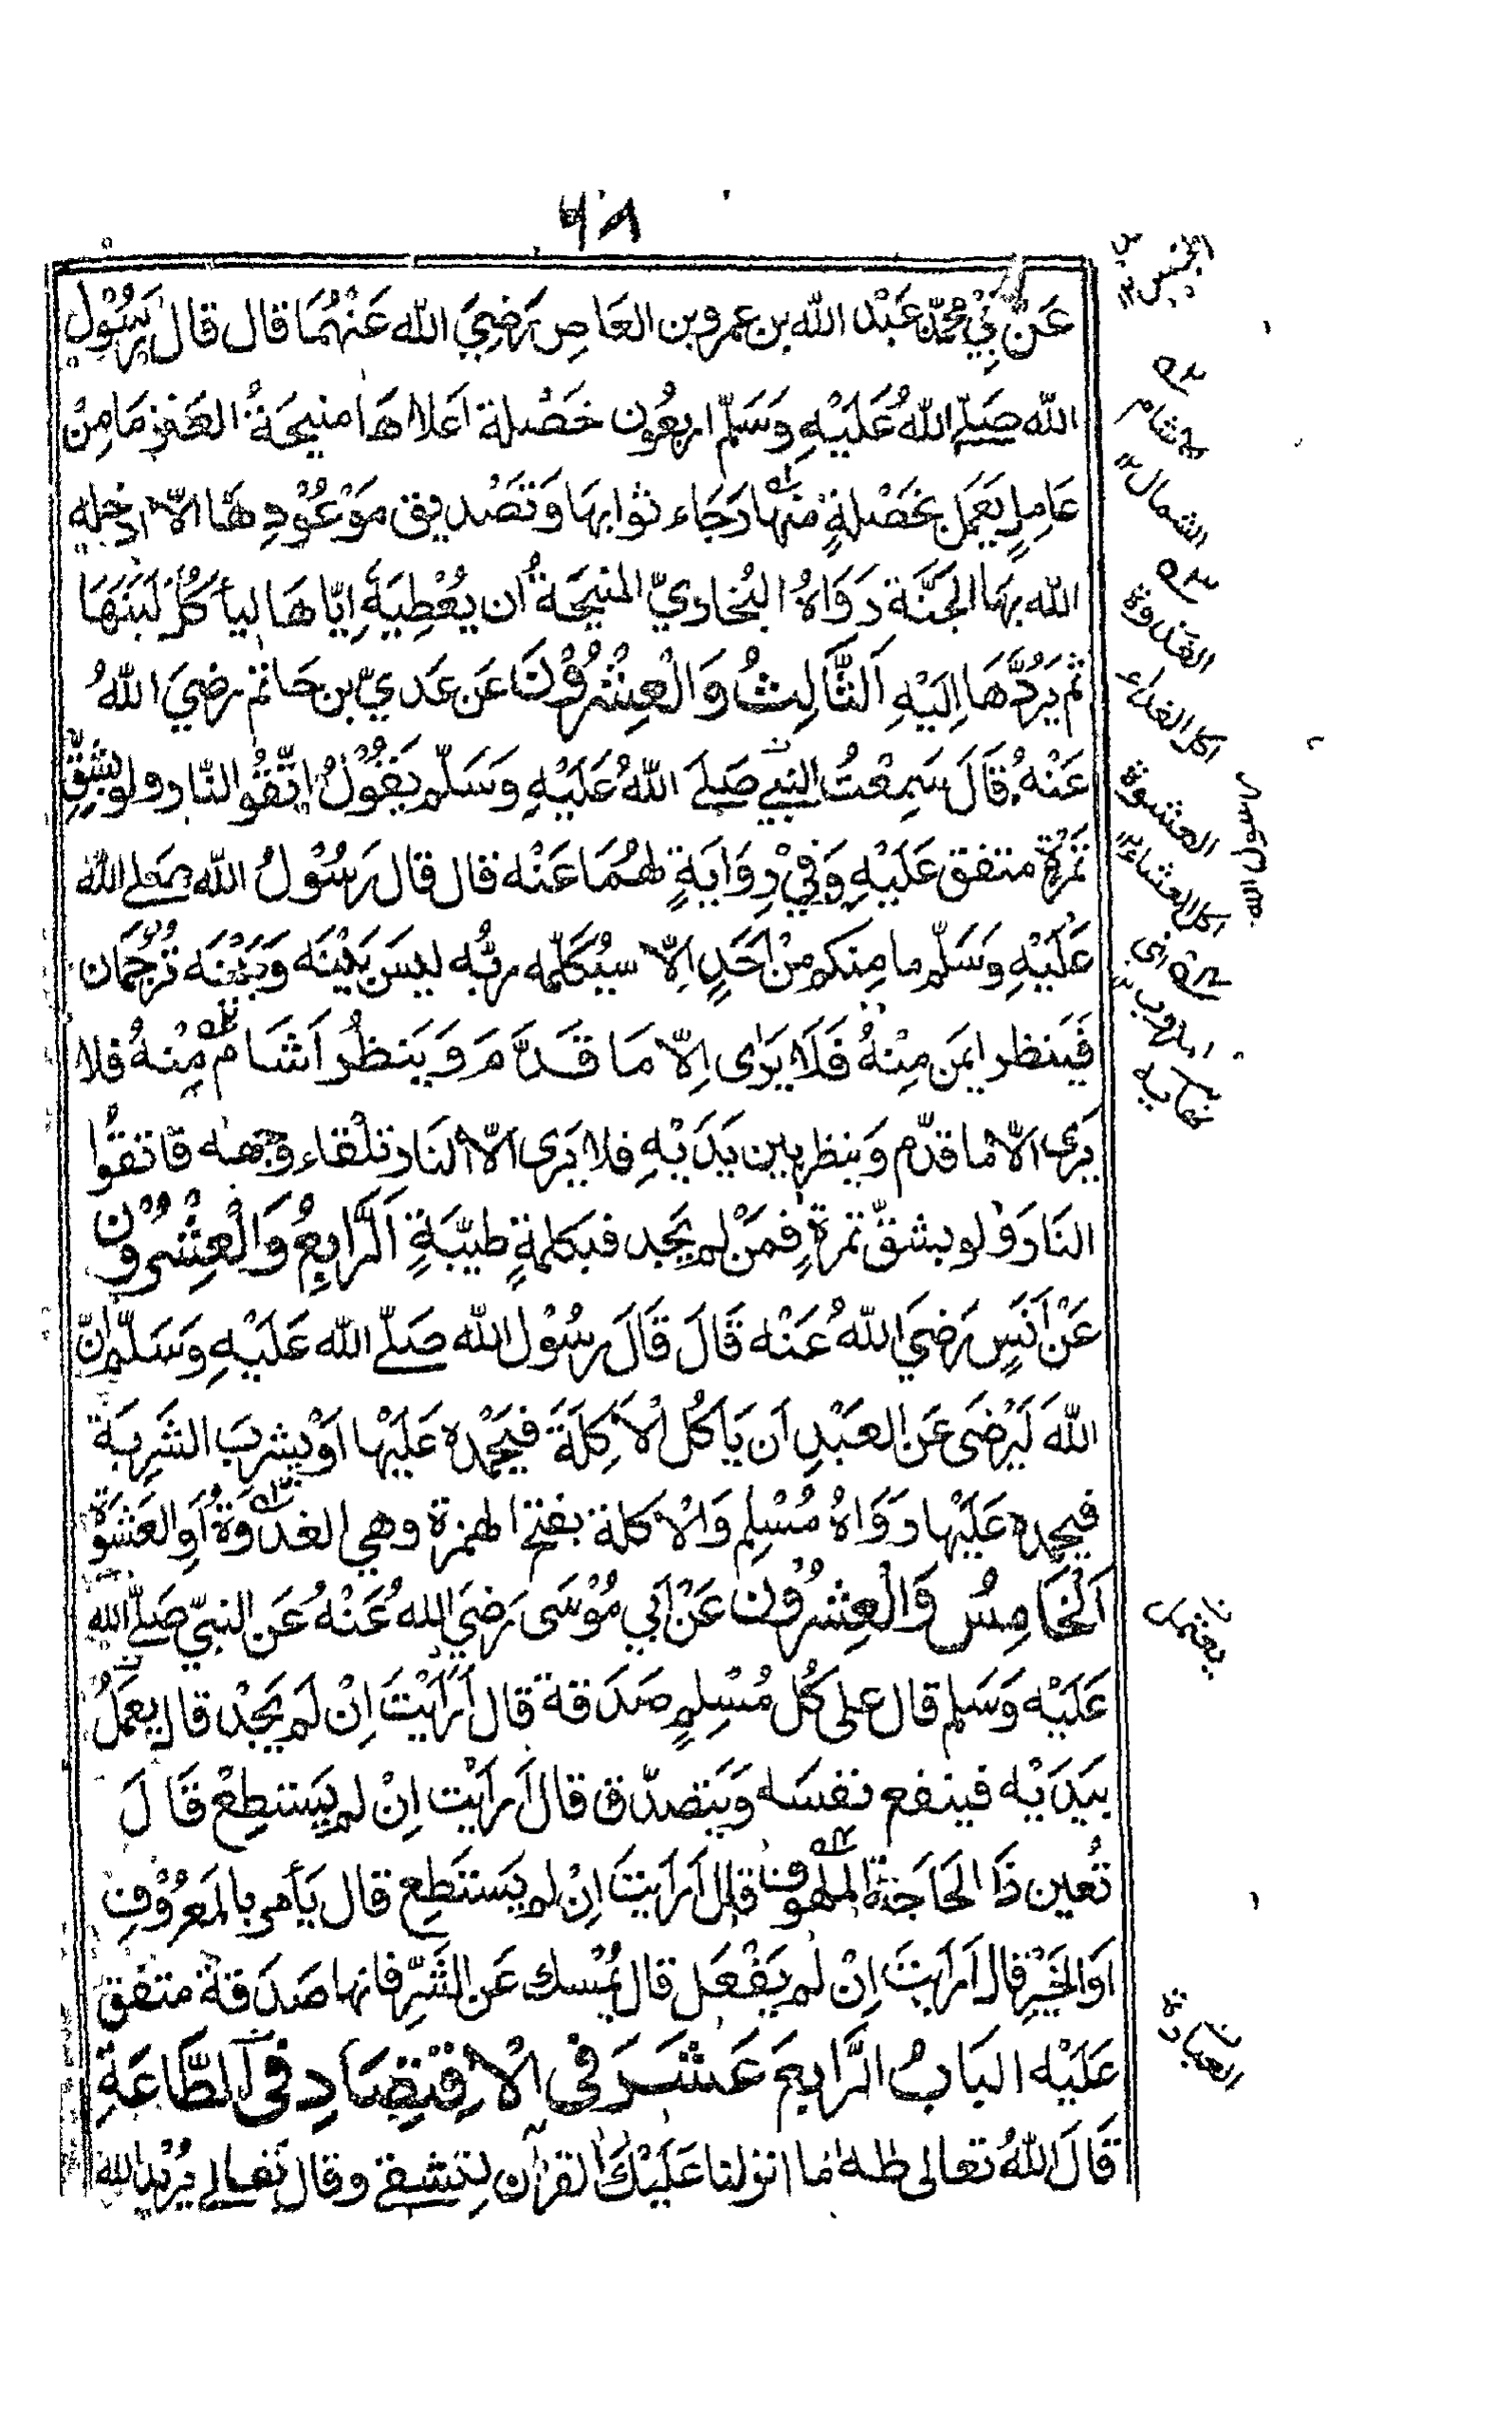 ٦٨
عَنْ أَبِيْ مُحَمَّد عَبْد الله بن عمرو بن العَاصِ رَضِيَ الله عَنْهُمَا قال قال رَسُوْل
الله صَلّى اللهُ عَلَيْهِ وَسَلّم اربعُون خَصْلة اعلاها منيحَةُ العَنزِ مَا مِنْ
عَامِلٍ يَعمَل بِخَصْلةٍ مِنْهَا رَجَاء ثوابِهَا وَتَصْديق مَوْعُوْدِهَا الّا ادخله
الله بهَا الجَنَّة رَوَاهُ البُخاريّ المَنيحَةُ اَن يُعْطِيَهِ اِيّاها ليأكُل لَبَنَهَا
ثم يَرُدَّهَا اِلَيْهِ اَلثَّالِثُ وَالْعِشْرُوْنَ عَن عَديّ بن حَاتم رضِيَ اللهُ
عَنْهُ قَالَ سَمِعْتُ النبي صَلَى اللهُ عَلَيْهِ وَسَلّم يَقُوْلُ اِتَّقُوالنّار ولو بِشِقِّ
تَمْرَةٍ متفق عَلَيْهِ وَفِيْ رِوَايَةٍ لهُمَا عَنْه قال قال رَسُوْلُ الله صَلى الله
عَلَيْهِ وَسَلّم ما مِنكم مِنْ اَحَدٍ اِلّا سيُكَلِّمه ربُّه ليسَ بَيْنَه وَبَيْنَه تُرجُمَان
فَيَنظر ايمَن مِنْهُ فَلَا يَرٰى اِلّا مَا قَدَّمَ وَيَنظُر اَشَامَ مِنْهُ فلا
يَرى الّا مَا قدّم وَينظر بين يَدَيْهِ فلا يَرى الّا النَار تلْقاء وَجهه فاتقوا
النَارَ وَلو بشقّ تمرةٍ فمَنْ لم يَجد فبكلمةٍ طيّبَةٍ اَلرَّابِعُ وَالْعِشْرُوْن
عَنْ اَنَسٍ رَضِيَ اللهُ عَنْه قَالَ قَالَ رسُوْل الله صَلّى الله عَلَيْهِ وَسَلّم اِنّ
اللهَ لَيَرْضَى عَن العَبْدِ اَن يَأكُل الْاَكِلَةَ فيَحْمَدُه عَلَيْها اَوْ يشربَ الشَرِبَة
فيحمده عَلَيْها رَوَاهُ مُسْلِم وَالْاكلة بفتح الهمزة وهي الغدوَةُ اَوِ العَشوَة
اَلْخَامِسُ وَالْعِشْرُوْن عَنْ اَبي مُوْسَى رَضِيَ اللهُ عَنْهُ عَن النبيّ صَلّى الله
عَلَيْه وَسَلم قال على كُل مُسْلِمٍ صَدَقة قال اَرَاَيْتَ اِنْ لَم يَجِدْ قال يعمَلُ
بيَدَيْه فينفع نفسَه وَيَتصَدّق قال اَرَاَيْت اِنْ لم يَستطِعْ قَالَ
تُعين ذَا الحَاجَة الملهوف قال اَرَاَيتَ اِنْ لم يَستَطِع قال يَأمر بالمَعرُوْفِ
اَو الخَيْرِ قال اَرَاَيتَ اِنْ لم يَفْعَل قال يُمْسك عَن الشَّرّ فانها صَدَقة متفق
عَلَيْه البَابُ الرَّابِعَ عَشَرَ فى الْاِقْتِصَادِ فى الطَّاعَةِ
قَالَ اللهُ تعالى طٰهٰ ما انزلنا عَلَيْكَ القرآن لِتشقى وقال تعالى يُرِيْدُ الله
الشمال
الغدوة
اكل الغداء
العشوة
اكل العشاء
نهاية
يعتمل
العبادة